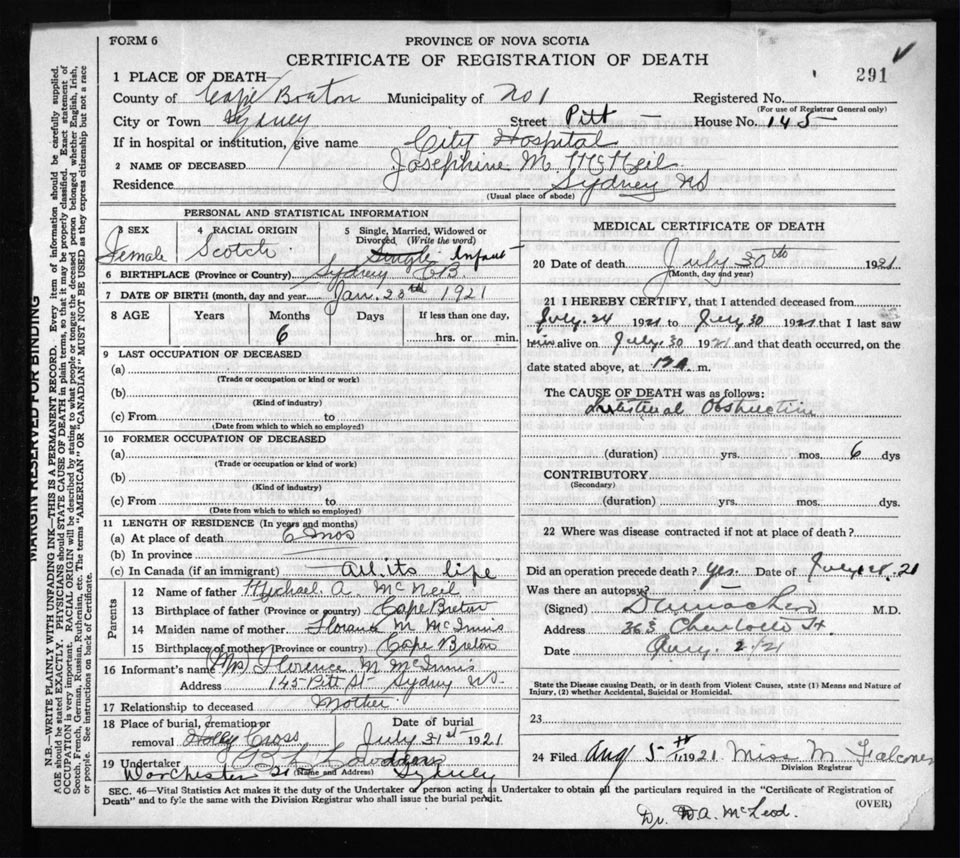 FORM 6
PROVINCE OF NOVA SCOTIA
CERTIFICATE OF REGISTRATION OF DEATH
291
1 PLACE OF DEATH
County of Cape Breton Municipality of No 1 Registered No.
(For use of Registrar General only)
City or Town Sydney Street Pitt House No. 145
If in hospital or institution, give name City Hospital
2 NAME OF DECEASED Josephine M. McNeil
Residence Sydney NS
(Usual place of abode)
PERSONAL AND STATISTICAL INFORMATION
3 SEX Female
4 RACIAL ORIGIN Scotch
5 Single, Married, Widowed or Divorced (Write the word) Single Infant
6 BIRTHPLACE (Province or Country) Sydney CB.
7 DATE OF BIRTH (month, day and year) Jan. 28th 1921
8 AGE Years Months Days If less than one day,
6 hrs. or min.
9 LAST OCCUPATION OF DECEASED
(a)
(Trade or occupation or kind or work)
(b)
(Kind of industry)
(c) From to
(Date from which to which so employed)
10 FORMER OCCUPATION OF DECEASED
(a)
(Trade or occupation or kind of work)
(b)
(Kind of industry)
(c) From to
(Date from which to which so employed)
11 LENGTH OF RESIDENCE (In years and months)
(a) At place of death 6 mos
(b) In province
(c) In Canada (if an immigrant) All its life
Parents
12 Name of father Michael A. McNeil
13 Birthplace of father (Province or country) Cape Breton
14 Maiden name of mother Florance M McInnis
15 Birthplace of mother (Province or country) Cape Breton
16 Informant's name (Mrs) Florence M. McInnis
Address 145 Pitt St Sydney NS.
17 Relationship to deceased Mother
18 Place of burial, cremation or removal Holly Cross
Date of burial July 31st 1921
19 Undertaker
(Name and Address)
Dorchester St Sydney
MEDICAL CERTIFICATE OF DEATH
20 Date of death July 30th 1921
(Month, day and year)
21 I HEREBY CERTIFY, that I attended deceased from
July. 24 1921 to July 30 1921 that I last saw
him alive on July. 30 1921 and that death occurred, on the
date stated above, at 12 a. m.
The CAUSE OF DEATH was as follows:
Intestinal Obstruction
(duration) yrs. mos. 6 dys
CONTRIBUTORY
(Secondary)
(duration) yrs. mos. dys.
22 Where was disease contracted if not at place of death?
Did an operation precede death? Yes. Date of July 21
Was there an autopsy?
(Signed) M.D.
Address 363 Charlotte St.
Date Aug. 2/21
State the Disease causing Death, or in death from Violent Causes, state (1) Means and Nature of
Injury, (2) whether Accidental, Suicidal or Homicidal.
23
24 Filed Aug 5th 1921 Miss M. Falconer
Division Registrar
SEC. 46—Vital Statistics Act makes it the duty of the Undertaker or person acting as Undertaker to obtain all the particulars required in the "Certificate of Registration of
Death" and to fyle the same with the Division Registrar who shall issue the burial permit.
(OVER)
Dr. D.A. McLeod.
MARGIN RESERVED FOR BINDING
N.B.—WRITE PLAINLY WITH UNFADING INK—THIS IS A PERMANENT RECORD. Every item of information should be carefully supplied.
AGE should be stated EXACTLY. PHYSICIANS should STATE CAUSE OF DEATH in plain terms, so that it may be properly classified. Exact statement of
OCCUPATION is very important. RACIAL ORIGIN will be described by stating to what people or tongue the deceased person belonged whether English, Irish,
Scotch, French, German, Russian, Ruthenian, etc. The terms "AMERICAN" OR "CANADIAN" MUST NOT BE USED as they express citizenship but not a race
or people. See instructions on back of Certificate.